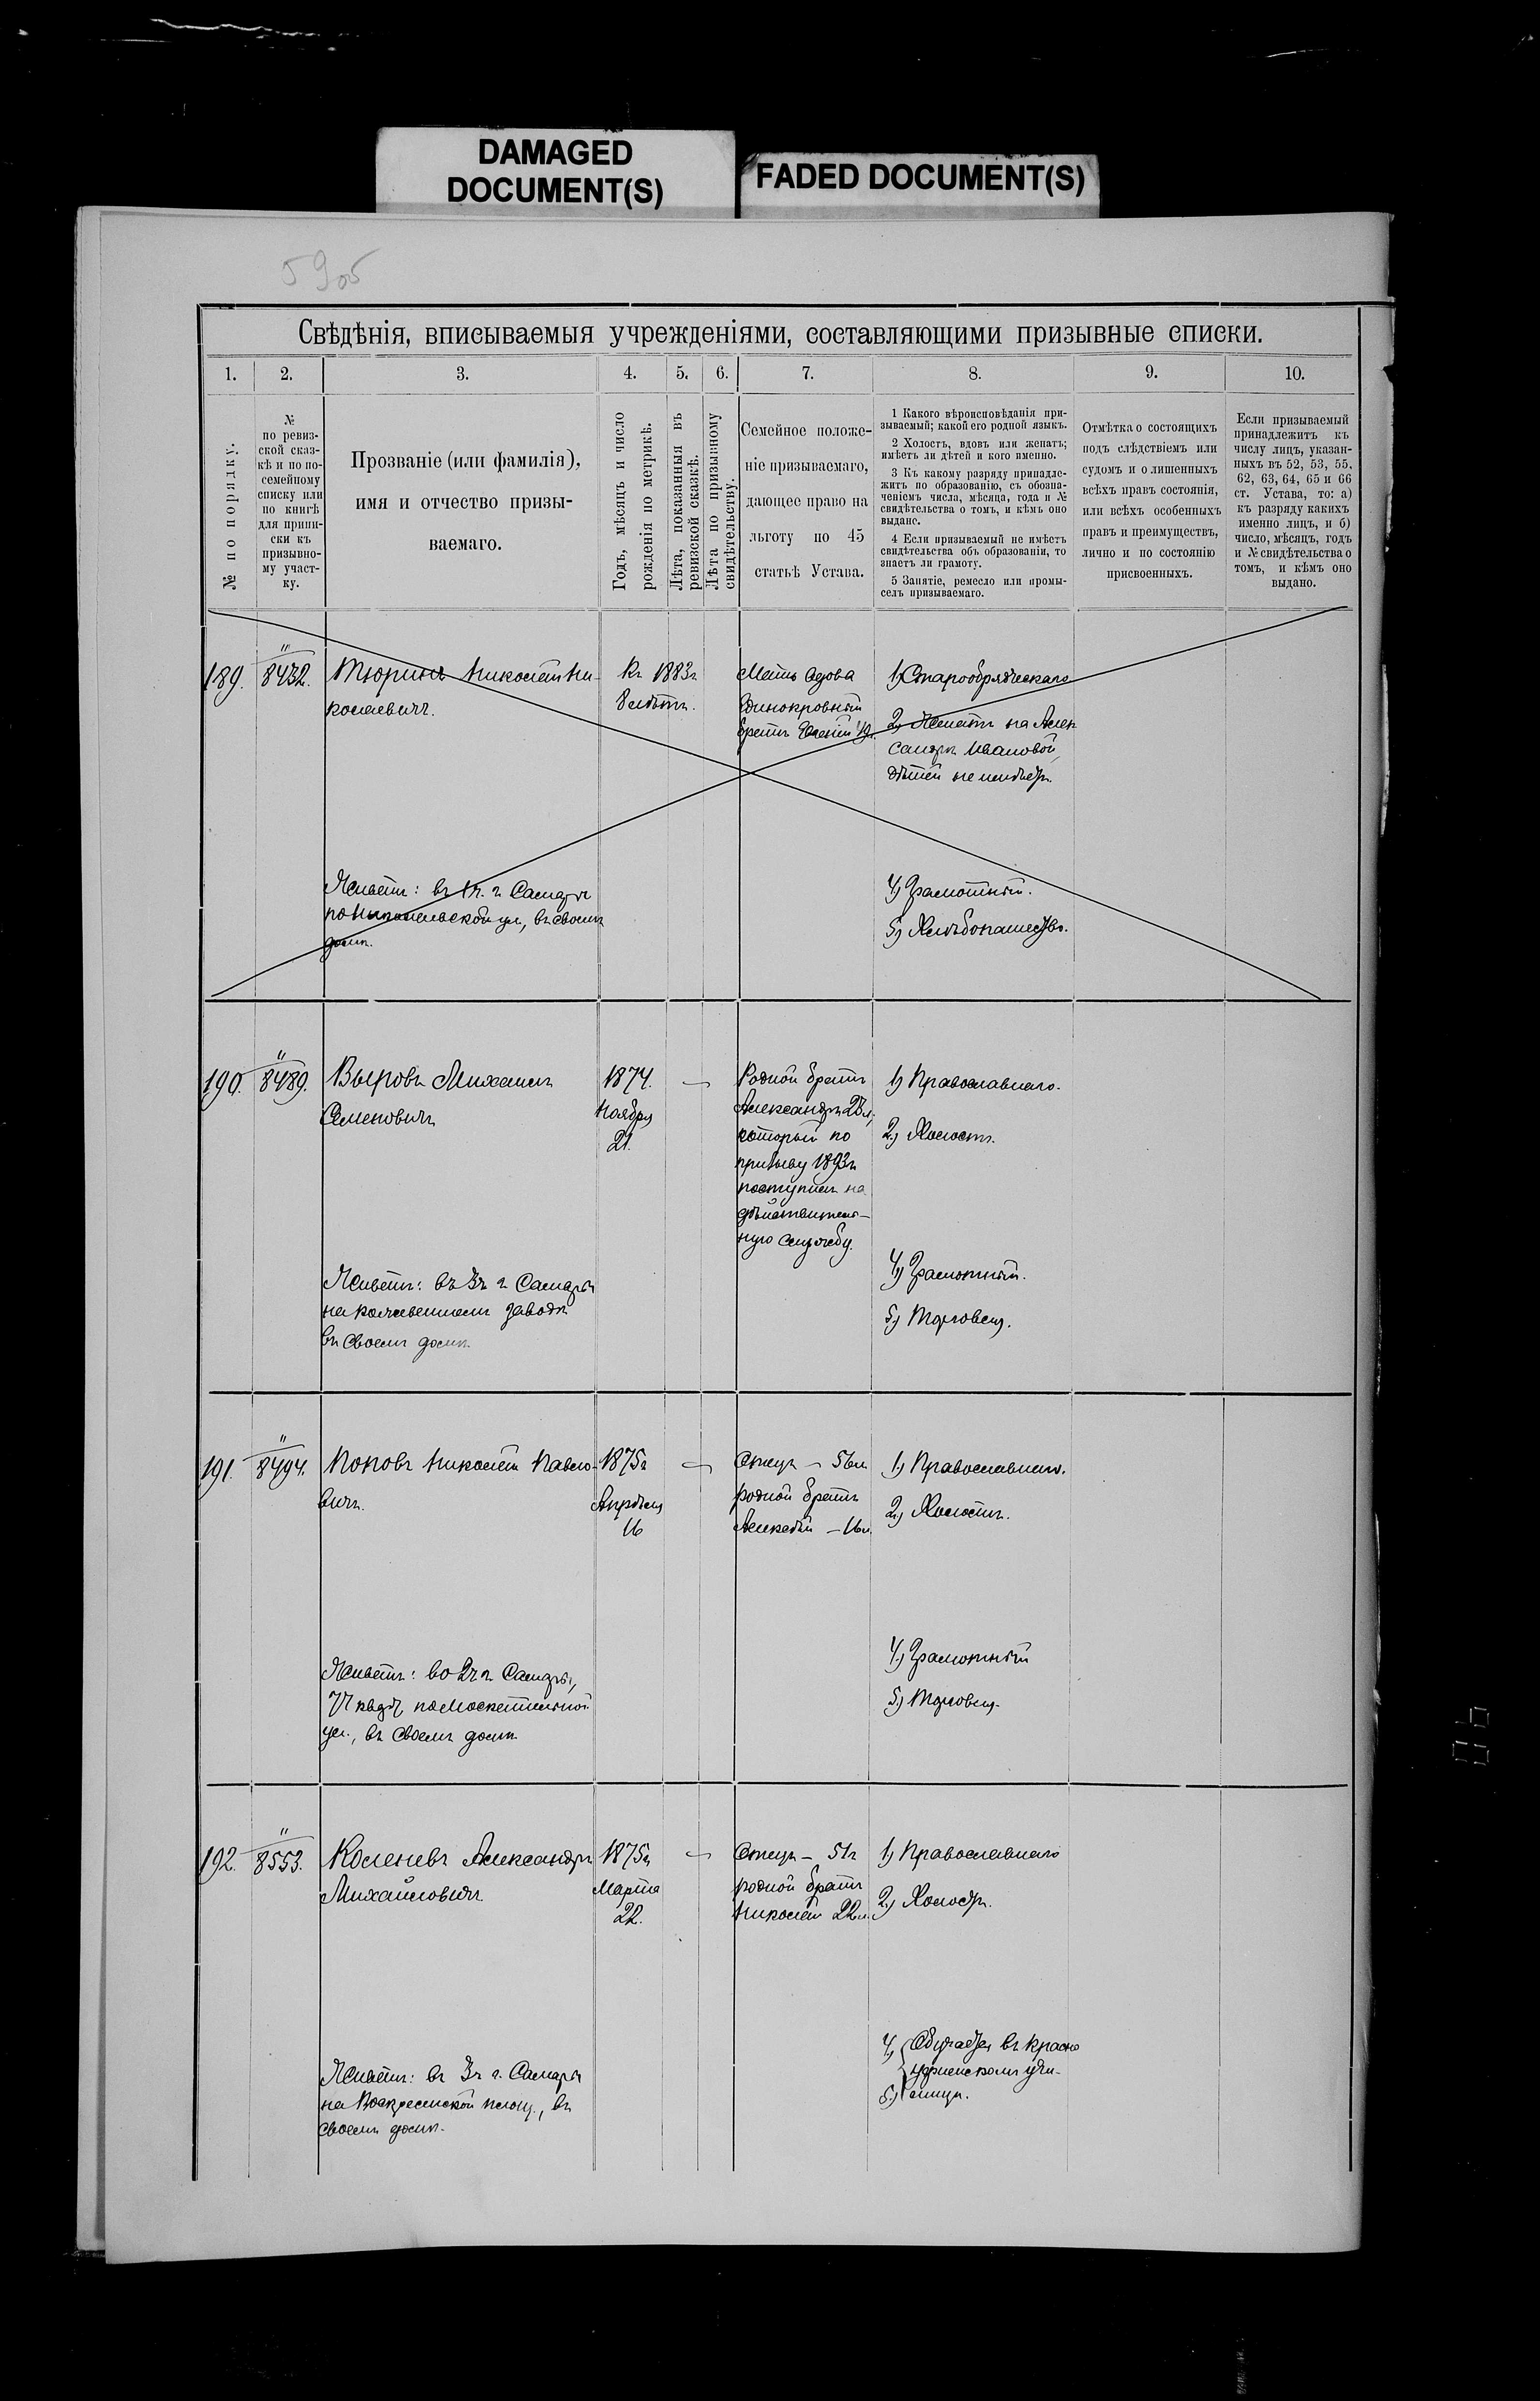 DAMAGED
DOCUMENT(S)
FADED DOCUMENT(S)
Свѣдѣнія, вписываемыя учрежденіями, составляющими призывные списки.
1. 2. 3. 4. 5. 6. 7. 8. 9. 10.
№ по порядку.
№
по ревиз-
ской сказ-
кѣ и по по-
семейному
списку или
по книгѣ
для припи-
ски къ
призывно-
му участ-
ку.
Прозваніе (или фамилія),
имя и отчество призы-
ваемаго.
Годъ, мѣсяцъ и число
рожденія по метрикѣ.
Лѣта, показанныя въ
ревизской сказкѣ.
Лѣта по призывному
свидѣтельству.
Семейное положе-
ніе призываемаго,
дающее право на
льготу по 45
статьѣ Устава.
1 Какого вѣроисповѣданія при-
зываемый; какой его родной языкъ.
2 Холостъ, вдовъ или женатъ;
имѣетъ ли дѣтей и кого именно.
3 Къ какому разряду принадле-
житъ по образованію, съ обозна-
ченіемъ числа, мѣсяца, года и №
свидѣтельства о томъ, и кѣмъ оно
выдано.
4 Если призываемый не имѣетъ
свидѣтельства объ образованіи, то
знаетъ ли грамоту.
5 Занятіе, ремесло или промы-
селъ призываемаго.
Отмѣтка о состоящихъ
подъ слѣдствіемъ или
судомъ и о лишенныхъ
всѣхъ правъ состоянія,
или всѣхъ особенныхъ
правъ и преимуществъ,
лично и по состоянію
присвоенныхъ.
Если призываемый
принадлежитъ къ
числу лицъ, указан-
ныхъ въ 52, 53, 55,
62, 63, 64, 65 и 66
ст. Устава, то: а)
къ разряду какихъ
именно лицъ, и б)
число, мѣсяцъ, годъ
и № свидѣтельства о
томъ, и кѣмъ оно
выдано.
189.
"
8432.
Тюринъ Николай Ни-
колаевичъ.
Къ 1883г
8 лѣтъ.
Мать вдова
единокровный
братъ
1) Старообрядческаго
2) Женатъ на Алек
сандрѣ Ивановой,
дѣтей не имѣетъ.
Живетъ: въ 1ч. г Самары
по Никольской ул, въ своемъ
домѣ.
4) Грамотный.
5) Хлѣбопашество.
190.
"
8489.
Выровъ Михаилъ
Семеновичъ
1874.
Ноября
21.
Родной братъ
Александръ 23л,
который по
призыву 1893г
поступилъ на
дѣйствитель-
ную службу.
1) Православнаго.
2) Холостъ.
Живетъ: въ 3ч г Самары
на заводѣ
въ своемъ домѣ.
4) Грамотный.
5) Торговец.
191.
"
8494.
Поповъ Николай Павло-
вичъ.
1875г
Апрѣля
16
Отецъ — 56л
родной братъ
Алексѣй — 16л.
1) Православнаго.
2) Холостъ.
Живетъ: во 2ч г Самары,
77 кварт. по Москательной
ул., въ своемъ домѣ
4) Грамотный
5) Торговец.
192.
"
8553.
Коленевъ Александръ
Михайловичъ
1875г
Марта
22.
Отецъ — 51г
родной братъ
Николай 22л.
1) Православнаго
2) Холостъ.
Живетъ: въ 3ч г. Самары
на Воскресенской площ., въ
своемъ домѣ.
4) Обучается въ Красно
5) уфимскомъ учи-
лищѣ.